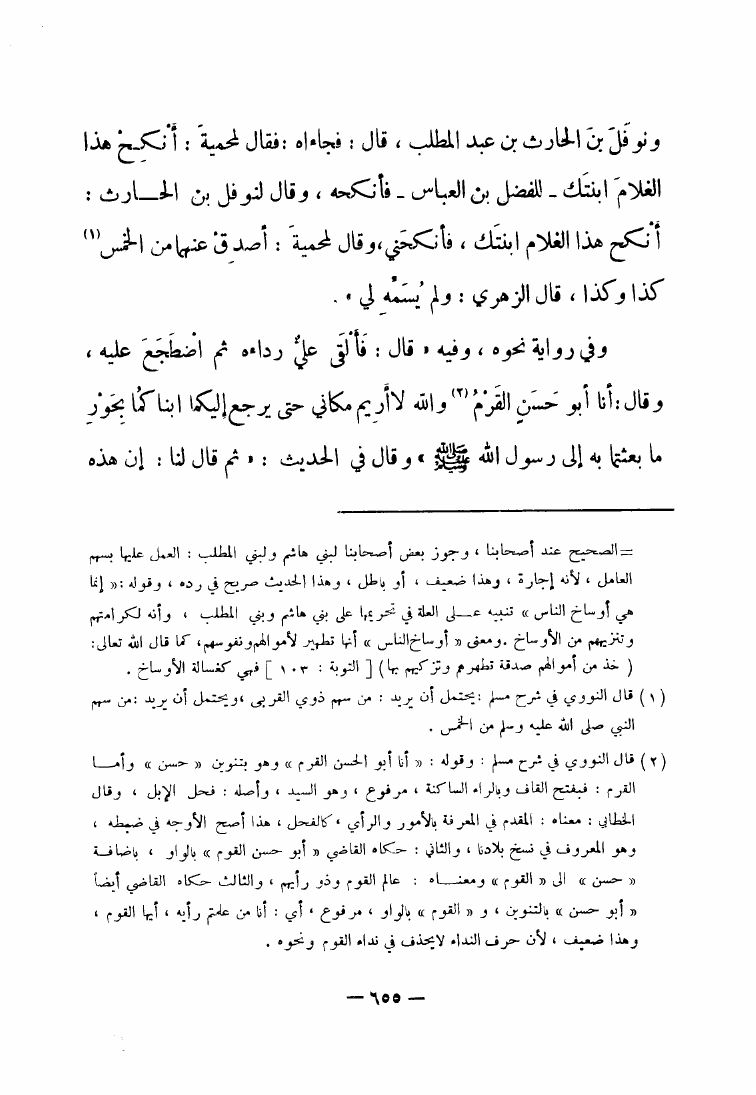 ونوفلَ بنَ الحارث بن عبد المطلب ، قال : فجاءاه :فقال لمحميةَ : أَنْكِحْ هذا
الغلامَ ابنتَك ـ للفضل بن العباس ـ فأنكحه ، وقال لنوفل بن الحـــارث :
أَنْكِحْ هذا الغلام ابنتك ، فأنكحَني،وقال لمحميةَ : أصدِقْ عنهما من الخمس (١)
كذا وكذا ، قال الزهري : ولم يُسَمِّهِ لي » .
وفي رواية نحوه ، وفيه « قال : فَأَلْقَى عليٌّ رداءه ثم اضْطَجَعَ عليه ،
وقال :أنا أبو حَسَنٍ القَرْمُ (٢) والله لا أَرِيم مكاني حتى يرجع إليكما ابناكُما بِحَوْرِ
ما بعثتما به إلى رسول الله ﷺ » وقال في الحديث : « ثم قال لنا : إن هذه
=الصحيح عند أصحابنا ، وجوز بعض أصحابنا لبني هاشم ولبني المطلب : العمل عليها بسهم
العامل ، لأنه إجارة ، وهذا ضعيف ، أو باطل ، وهذا الحديث صريح في رده ، وقوله :« إنما
هي أوساخ الناس » تنبيه عـــلى العلة في تحريمها على بني هاشم وبني المطلب ، وأنه لكرامتهم
وتنزيههم من الأوساخ .ومعنى « أوساخ الناس » أنها تطهير لأموالهم ونفوسهم، كما قال الله تعالى:
( خذ من أموالهم صدقة تطهرهم وتزكيهم بها ) [ التوبة : ١٠٣ ] فهي كغسالة الأوساخ .
(١) قال النووي في شرح مسلم :يحتمل أن يريد : من سهم ذوي القربى ،ويحتمل أن يريد :من سهم
النبي صلى الله عليه وسلم من الخمس .
(٢) قال النووي في شرح مسلم : وقوله : « أنا أبو الحسن القرم » وهو بتنوين « حسن » وأمـــا
القرم : فبفتح القاف وبالراء الساكنة ، مرفوع ، وهو السيد ، وأصله : فحل الإبل ، وقال
الخطابي : معناه : المقدم في المعرفة بالأمور والرأي ، كالفحل ، هذا أصح الأوجه في ضبطه ،
وهو المعروف في نسخ بلادنا ، والثاني : حكاه القاضي « أبو حسن القوم » بالواو ، باضافـة
« حسن » الى « القوم » ومعنـــاه : عالم القوم وذو رأيهم ، والثالث حكاه القاضي أيضاً
« أبو حسن » بالتنوين ، و « القوم » بالواو ، مرفوع ، أي : أنا من علمتم رأيه ، أيها القوم ،
وهذا ضعيف ، لأن حرف النداء لايحذف في نداء القوم ونحوه .
— ٦٥٥ —